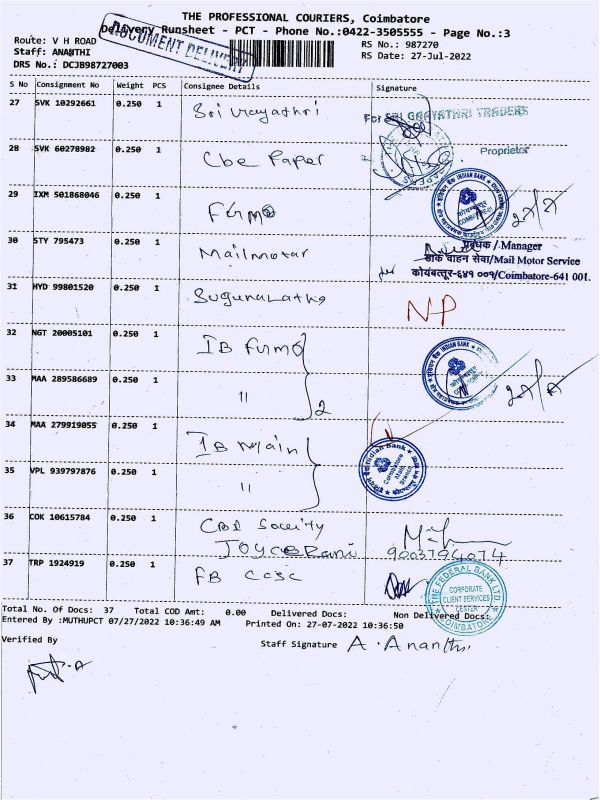 THE PROFESSIONAL COURIERS, Coimbatore
Delivery Runsheet - PCT - Phone No.:0422-3505555 - Page No.:3
DOCUMENT DELIVERY
Route: V H ROAD
RS No.: 987270
Staff: ANANTHI
RS Date: 27-Jul-2022
DRS No.: DCJB98727003
S No Consignment No Weight PCS Consignee Details Signature
27 SVK 10292661 0.250 1 Sri
For SRI GAAYATHRI TRADERS
Proprietor
28 SVK 60278982 0.250 1 Cbe Paper
29 IXM 501868046 0.250 1
INDIAN BANK
30 STY 795473 0.250 1 Mailmotor
प्रबंधक / Manager
डाक वाहन सेवा/Mail Motor Service
कोयंबत्तूर-६४१ ००१/Coimbatore-641 001.
31 HYD 99801520 0.250 1 Sugunalatha NP
32 NGT 20005101 0.250 1 IB
INDIAN BANK
33 MAA 289586689 0.250 1 " 2
34 MAA 279919055 0.250 1 IB Main
Indian Bank
Coimbatore
Main
Branch
35 VPL 939797876 0.250 1 "
36 COK 10615784 0.250 1 CBI
37 TRP 1924919 0.250 1 FB CCSC
THE FEDERAL BANK LTD.
CORPORATE
CLIENT SERVICES
CENTER
COIMBATORE
Total No. Of Docs: 37 Total COD Amt: 0.00 Delivered Docs: Non Delivered Docs:
Entered By :MUTHUPCT 07/27/2022 10:36:49 AM Printed On: 27-07-2022 10:36:50
Verified By Staff Signature A. Ananthi.